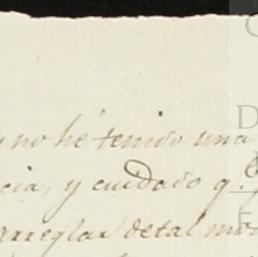 y no hé tenido una
cia, y cuidado q.
arreglar de tal mo